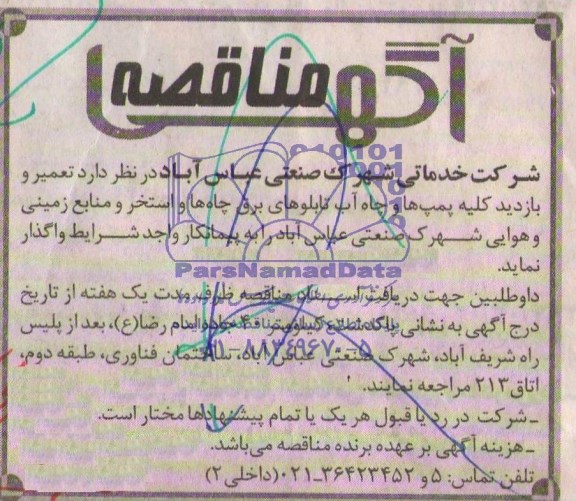 آگهی مناقصه
شرکت خدماتی شهرک صنعتی عباس آباد در نظر دارد تعمیر و
بازدید کلیه پمپ‌ها و چاه آب تابلوهای برق چاه‌ها و استخر و منابع زمینی
و هوایی شهرک صنعتی عباس آباد را به پیمانکار واجد شرایط واگذار
نماید.
داوطلبین جهت دریافت اسناد مناقصه ظرف مدت یک هفته از تاریخ
درج آگهی به نشانی جاده امام رضا(ع)، بعد از پلیس
راه شریف آباد، شهرک صنعتی عباس آباد، ساختمان فناوری، طبقه دوم،
اتاق ۲۱۳ مراجعه نمایند.
ـ شرکت در رد یا قبول هر یک یا تمام پیشنهادها مختار است.
ـ هزینه آگهی بر عهده برنده مناقصه می‌باشد.
تلفن تماس: ۵ و ۳۶۴۲۳۴۵۲ـ۰۲۱(داخلی ۲)
ParsNamadData